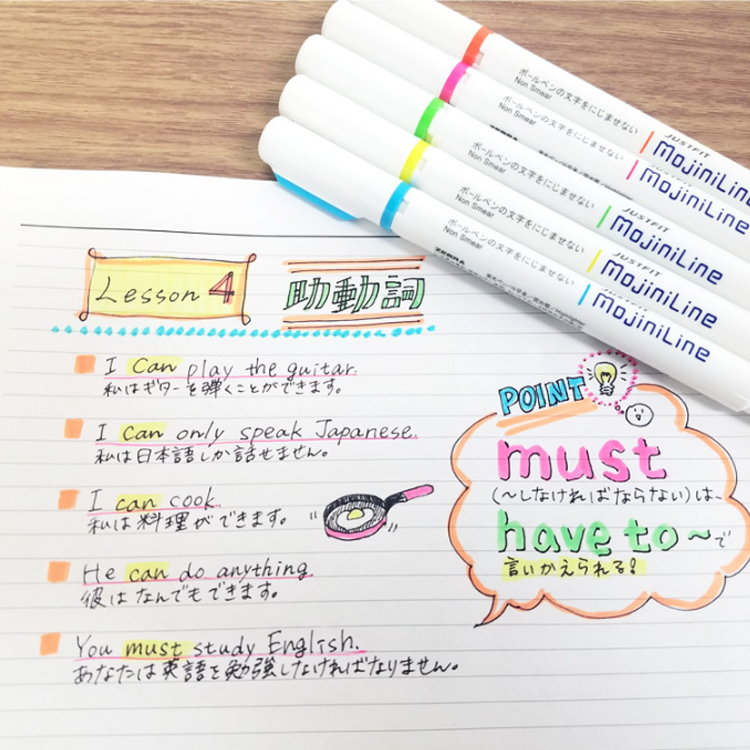 ボールペンの文字をにじませない
Non Smear
JUSTFIT
MojiniLine
ボールペンの文字をにじませない
Non Smear
MojiniLine
ボールペンの文字をにじませない
Non Smear
JUSTFIT
MojiniLine
ボールペンの文字をにじませない
Non Smear
JUSTFIT
MojiniLine
ボールペンの文字をにじませない
Non Smear
ZEBRA
JUSTFIT
MojiniLine
Lesson 4 助動詞
I can play the guitar.
私はギターを弾くことができます。
I can only speak Japanese.
私は日本語しか話せません。
I can cook.
私は料理ができます。
He can do anything.
彼はなんでもできます。
You must study English.
あなたは英語を勉強しなければなりません。
POINT
must
(〜しなければならない)は、
have to〜で
言いかえられる!